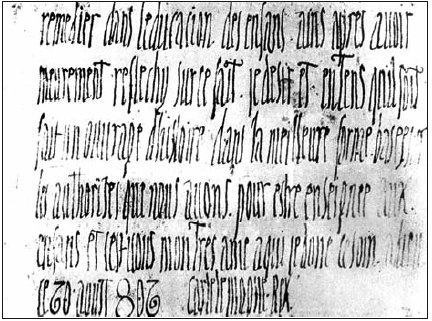 remedier dans leducacion des enfans. ains apres avoir
meurement reflechy sur ce fait. je desir et entens quil soit
fait un ouvrage dhistoire dans la meilleure forme base sur
les authorites que nous avons. pour estre enseignee aux
enfans et cest vous mon tres ame a qui je done ce soin.
ce aout Carlemagne. Rex